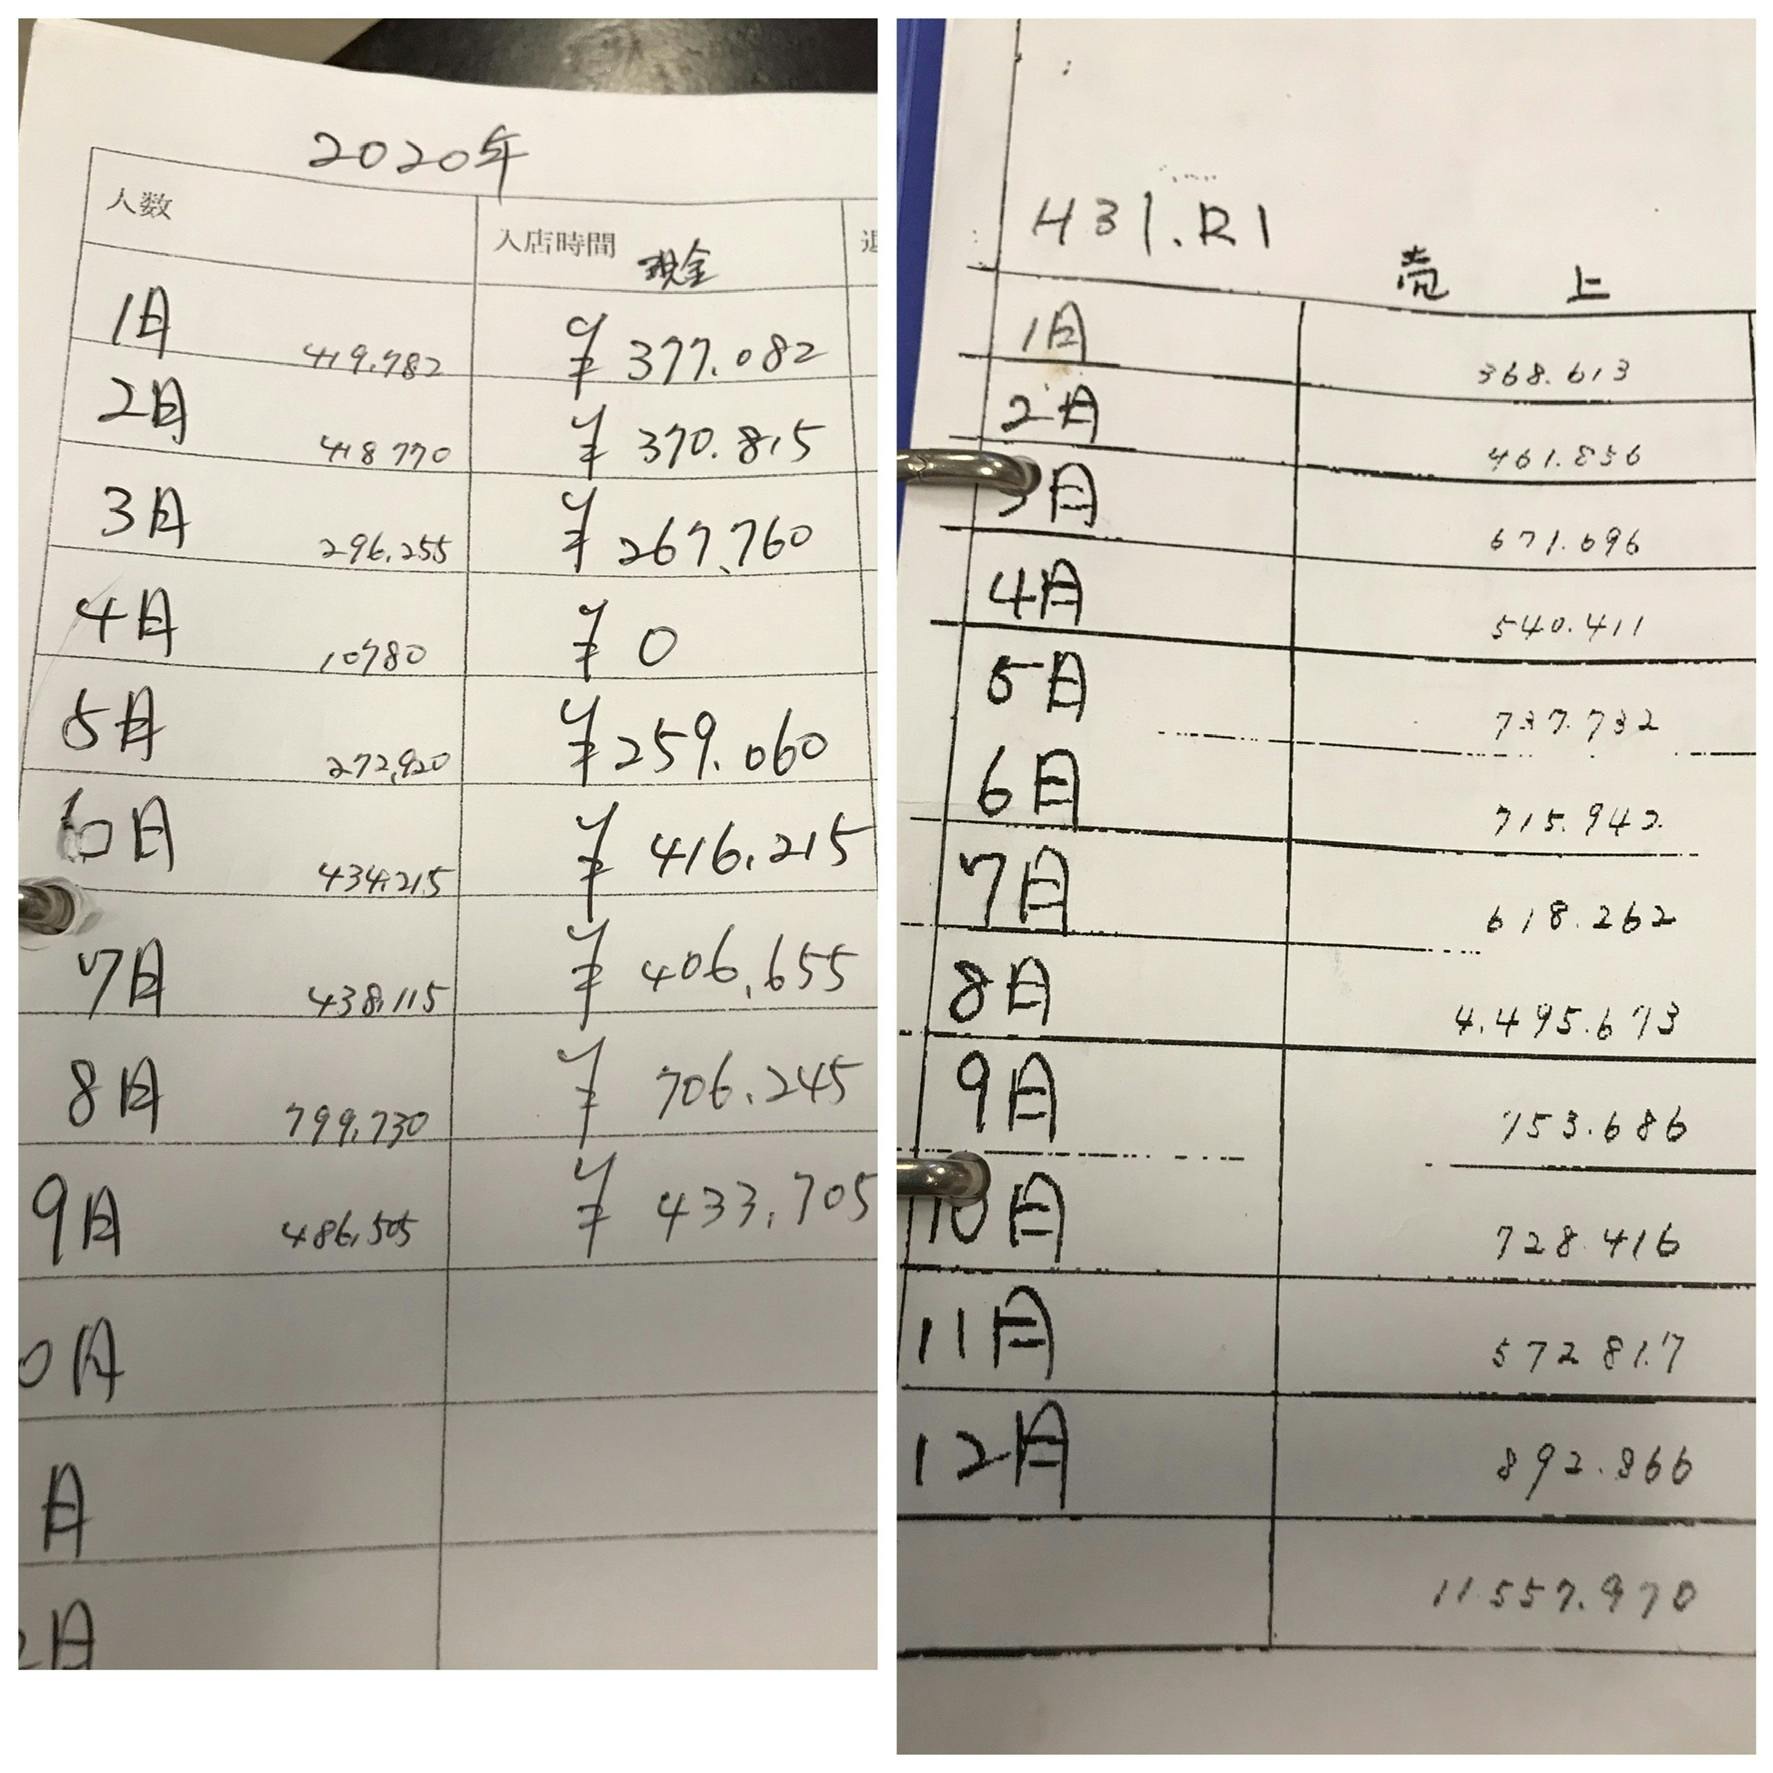 2020年
人数
入店時間 現金
1月 419,782 ¥377.082
2月 418 770 ¥370.815
3月 296,255 ¥267,760
4月 10780 ¥0
5月 272,920 ¥259.060
6月 434,215 ¥416,215
7月 438,115 ¥406,655
8月 799,730 ¥706,245
9月 486,505 ¥433,705
0月
月
2月
H31.R1
売上
1月 368.613
2月 461.856
3月 671.696
4月 540.411
5月 737.732
6月 715.942
7月 618.262
8月 4.495.673
9月 753.686
10月 728 416
11月 572 817
12月 892.866
11 557.970